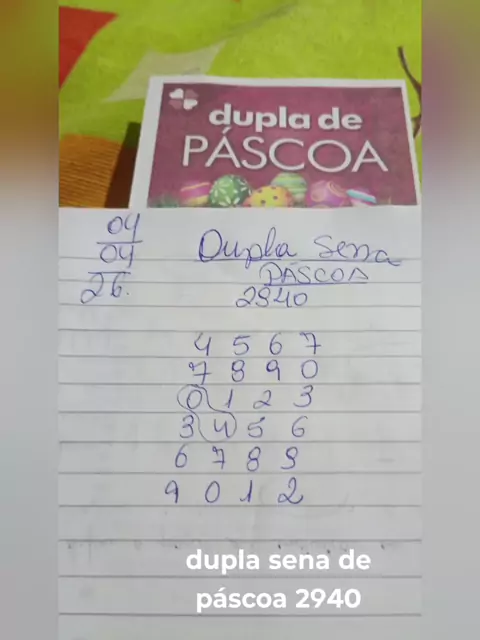 dupla de
PÁSCOA
04
04
26.
Dupla Sena
PÁSCOA
2940
4 5 6 7
7 8 9 0
0 1 2 3
3 4 5 6
6 7 8 9
9 0 1 2
dupla sena de
páscoa 2940